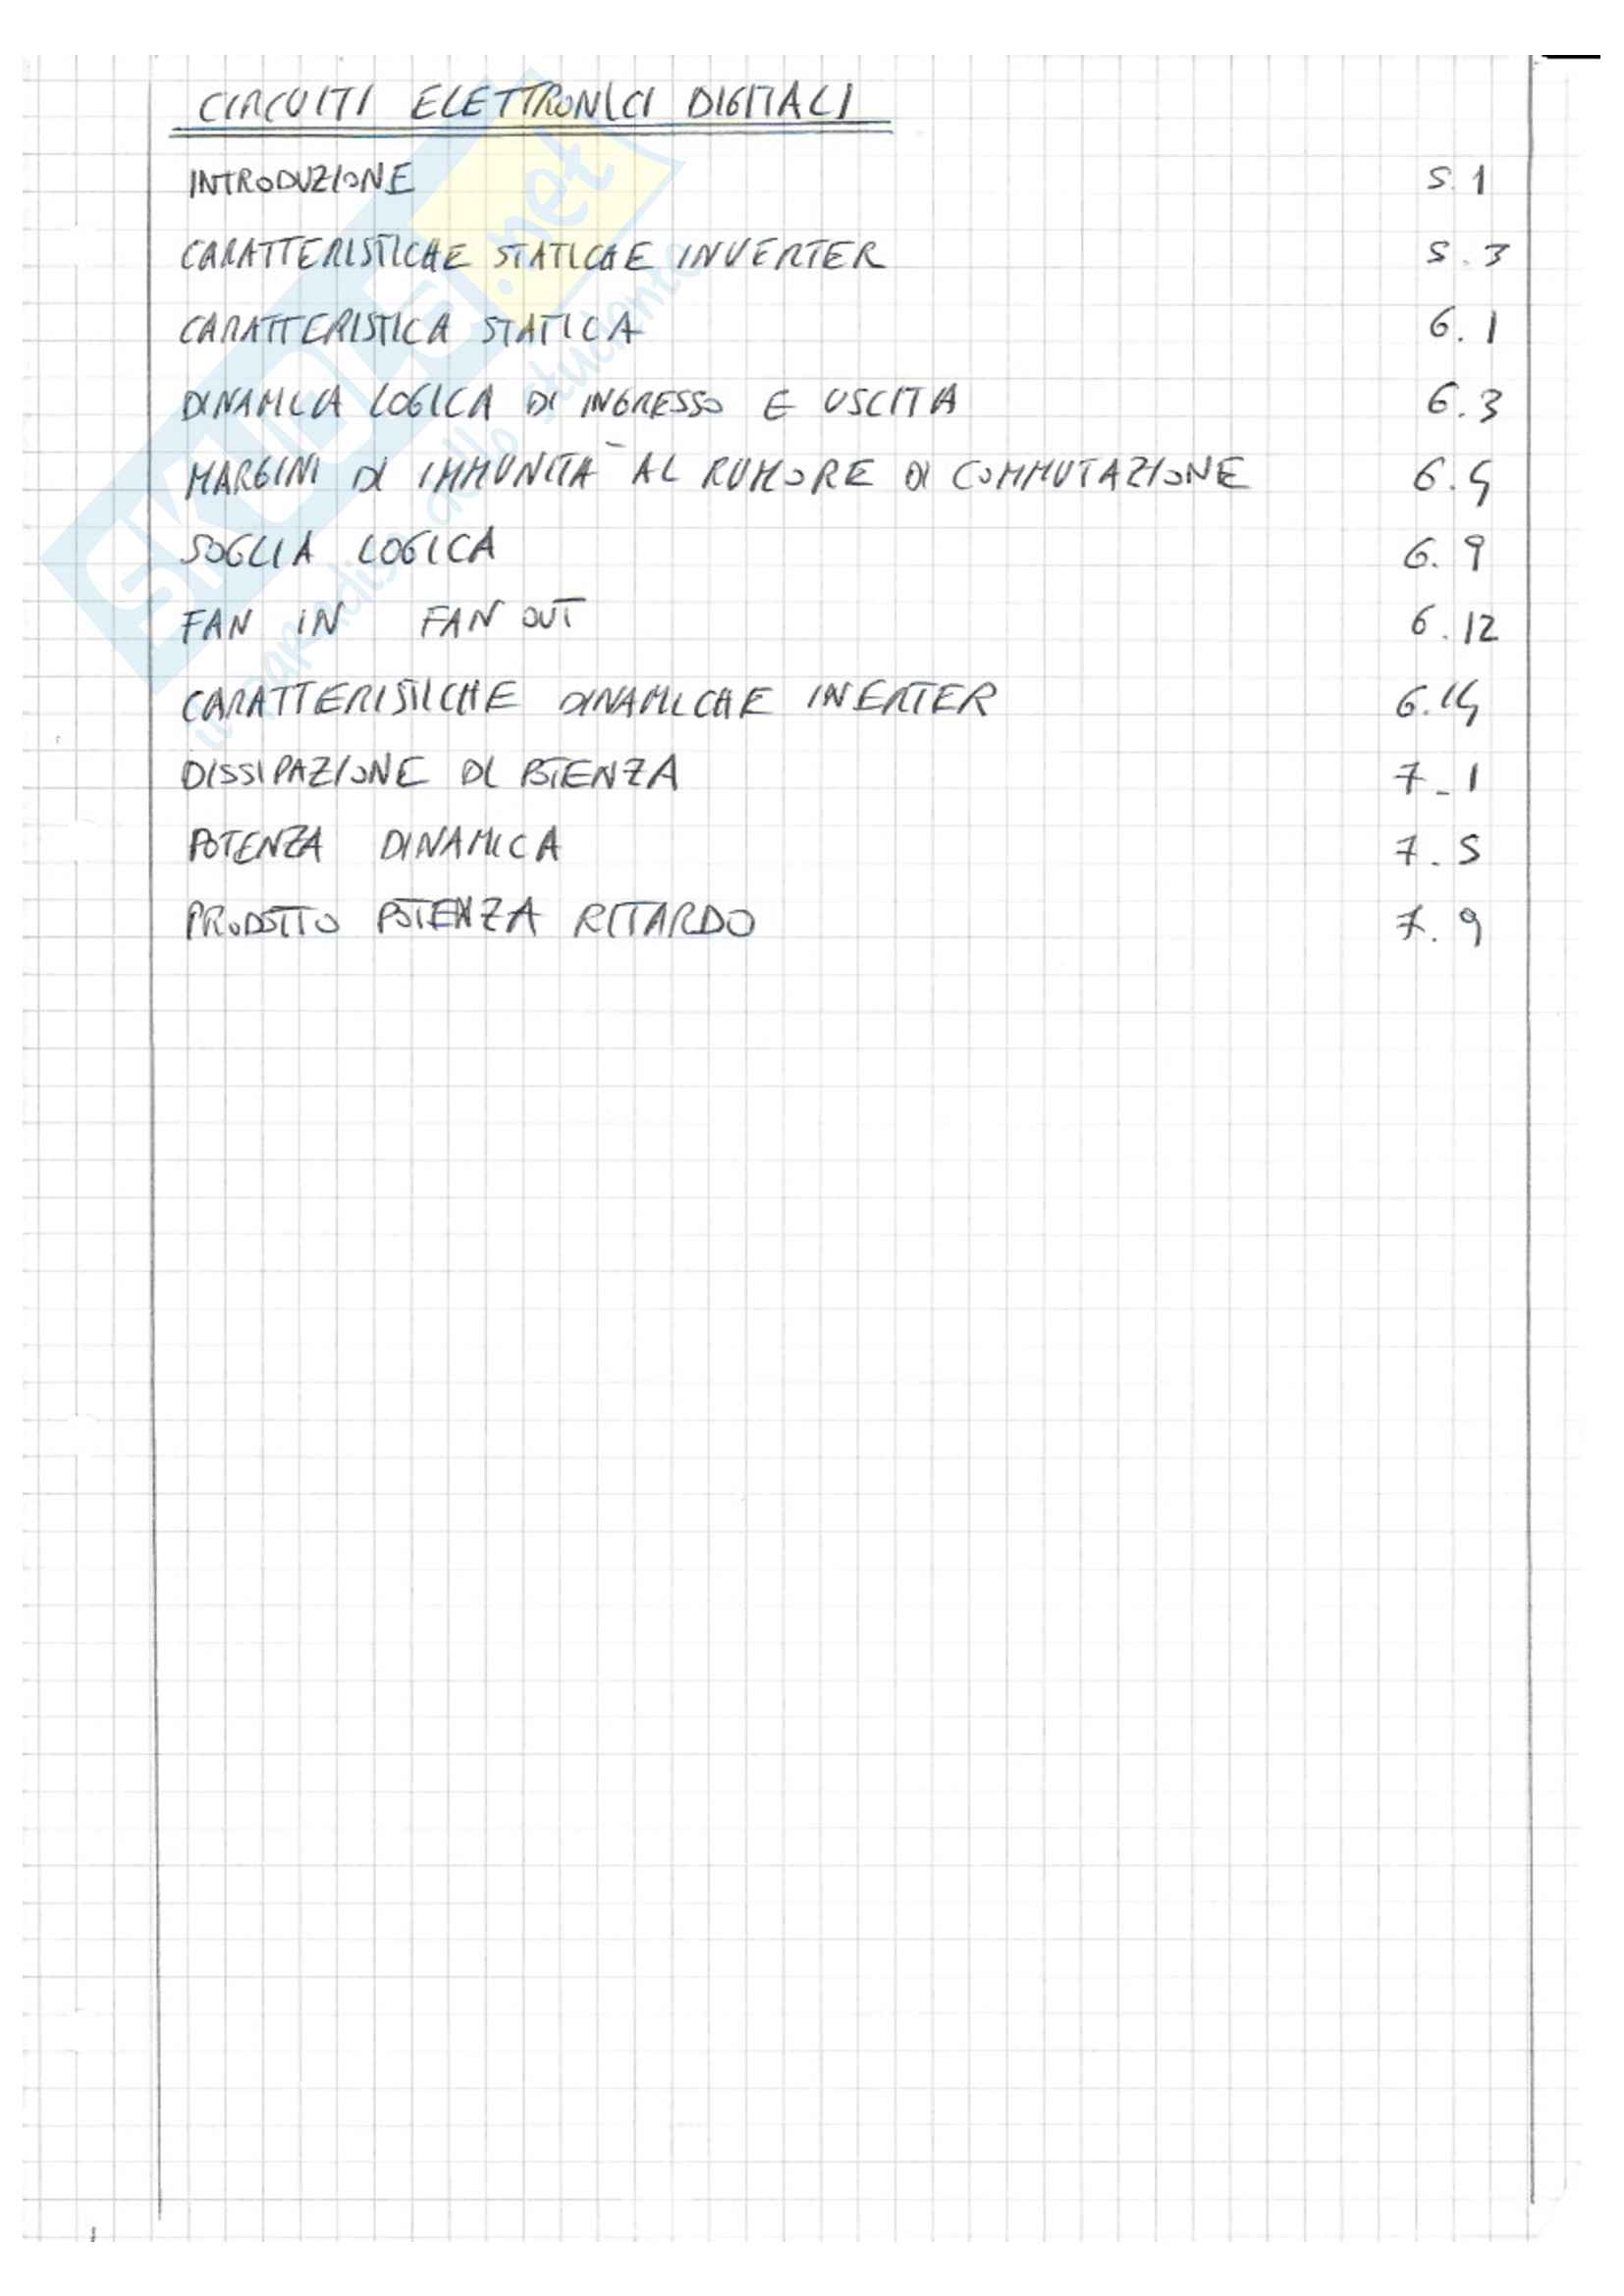 CIRCUITI ELETTRONICI DIGITALI
INTRODUZIONE 5.1
CARATTERISTICHE STATICHE INVERTER 5.3
CARATTERISTICA STATICA 6.1
DINAMICA LOGICA DI INGRESSO E USCITA 6.3
MARGINI DI IMMUNITÀ AL RUMORE DI COMMUTAZIONE 6.5
SOGLIA LOGICA 6.9
FAN IN FAN OUT 6.12
CARATTERISTICHE DINAMICHE INERTER 6.15
DISSIPAZIONE DI POTENZA 7-1
POTENZA DINAMICA 7.5
PRODOTTO POTENZA RITARDO 7.9
SKUOLA.net
il paradiso dello studente